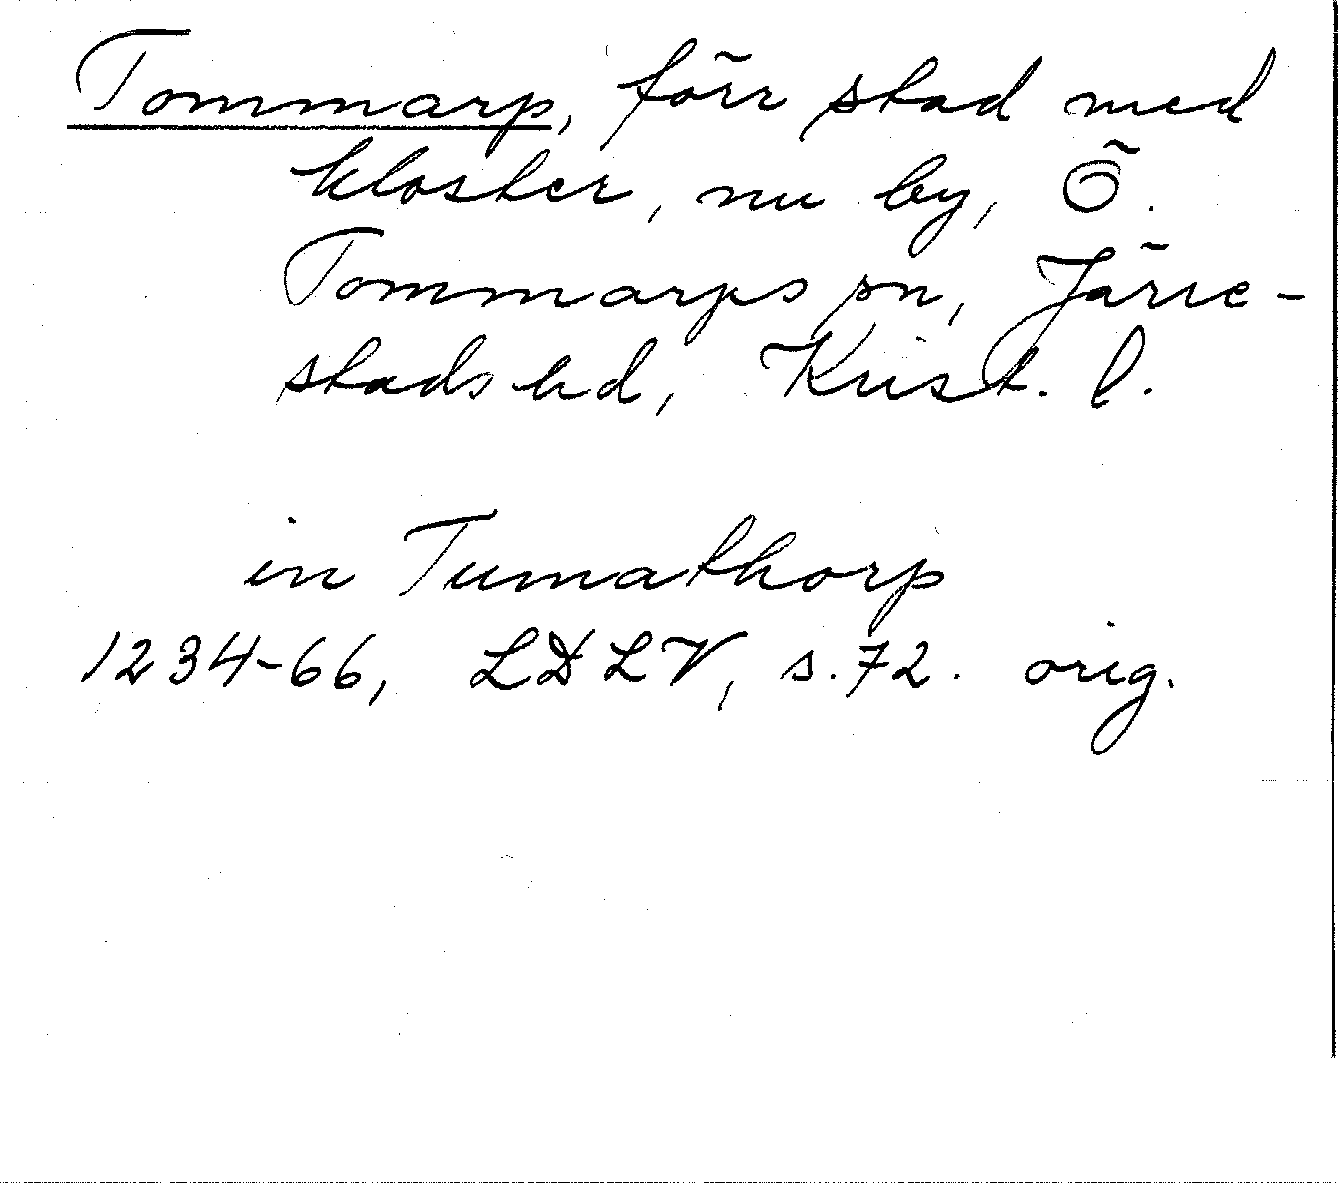 Tommarp, förr stad med
kloster, nu by, Ö.
Tommarps sn, Järre-
stads hd, Krist. l.
in Tumathorp
1234-66, LDLV, s. 72. orig.